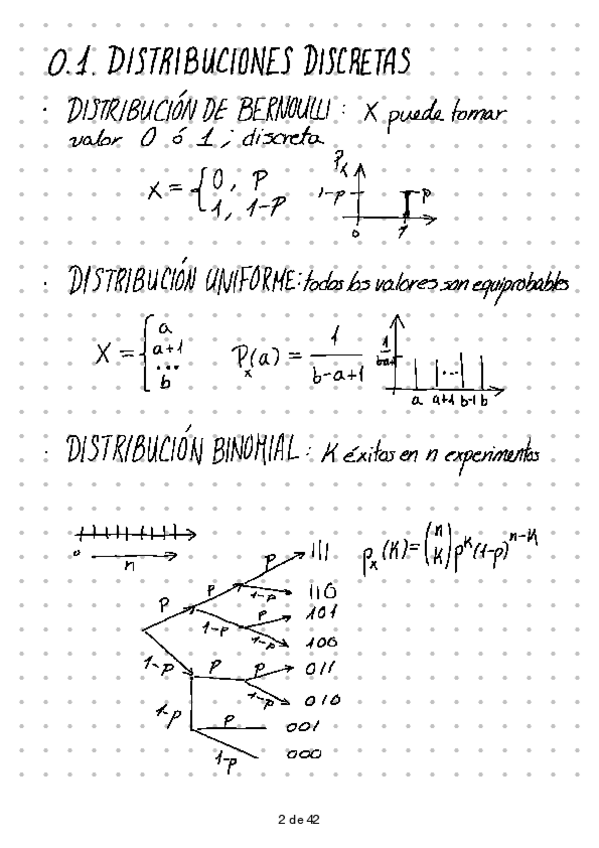 0.1. DISTRIBUCIONES DISCRETAS
· DISTRIBUCIÓN DE BERNOULLI: X puede tomar
valor 0 ó 1; discreta
X = { 0, P
1, 1-P
Px
1-p
p
0 1
· DISTRIBUCIÓN UNIFORME: todos los valores son equiprobables
X = { a
a+1
...
b
Px(a) = 1 / (b-a+1)
...
a a+1 b-1 b
· DISTRIBUCIÓN BINOMIAL: K éxitos en n experimentos
0 n
px(K) = (n K) p^K (1-p)^n-K
p 111
p p
1-p 110
p 101
1-p
1-p 100
1-p p p 011
1-p 010
1-p p 001
1-p 000
2 de 42